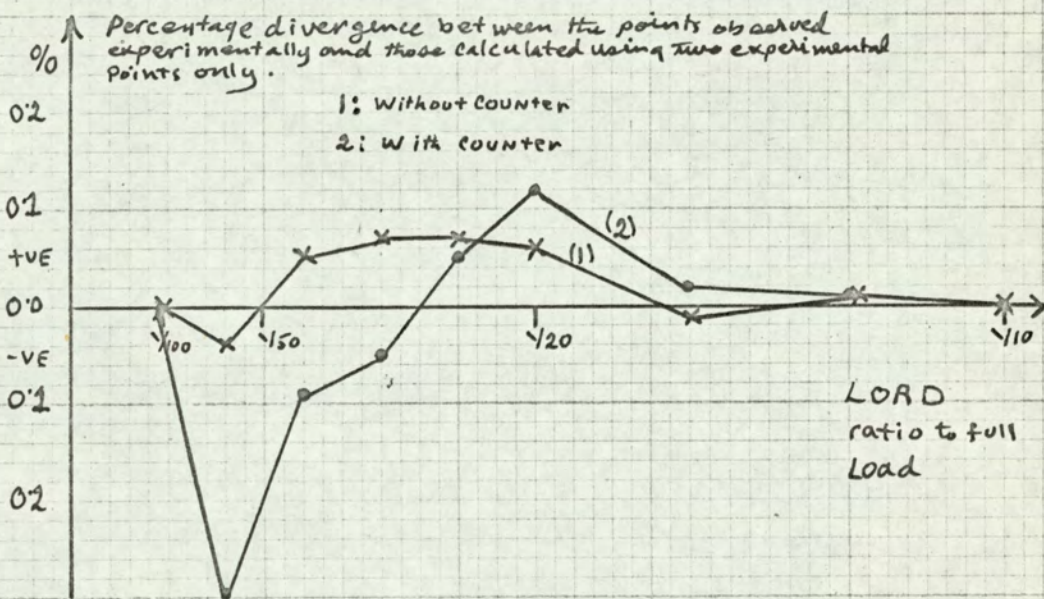 Percentage divergence between the points observed
experimentally and those calculated using two experimental
points only.
%
1: Without counter
2: With counter
0.2
0.1
+VE
0.0
-VE
0.1
0.2
(2)
(1)
1/100
1/50
1/20
1/10
LOAD
ratio to full
Load